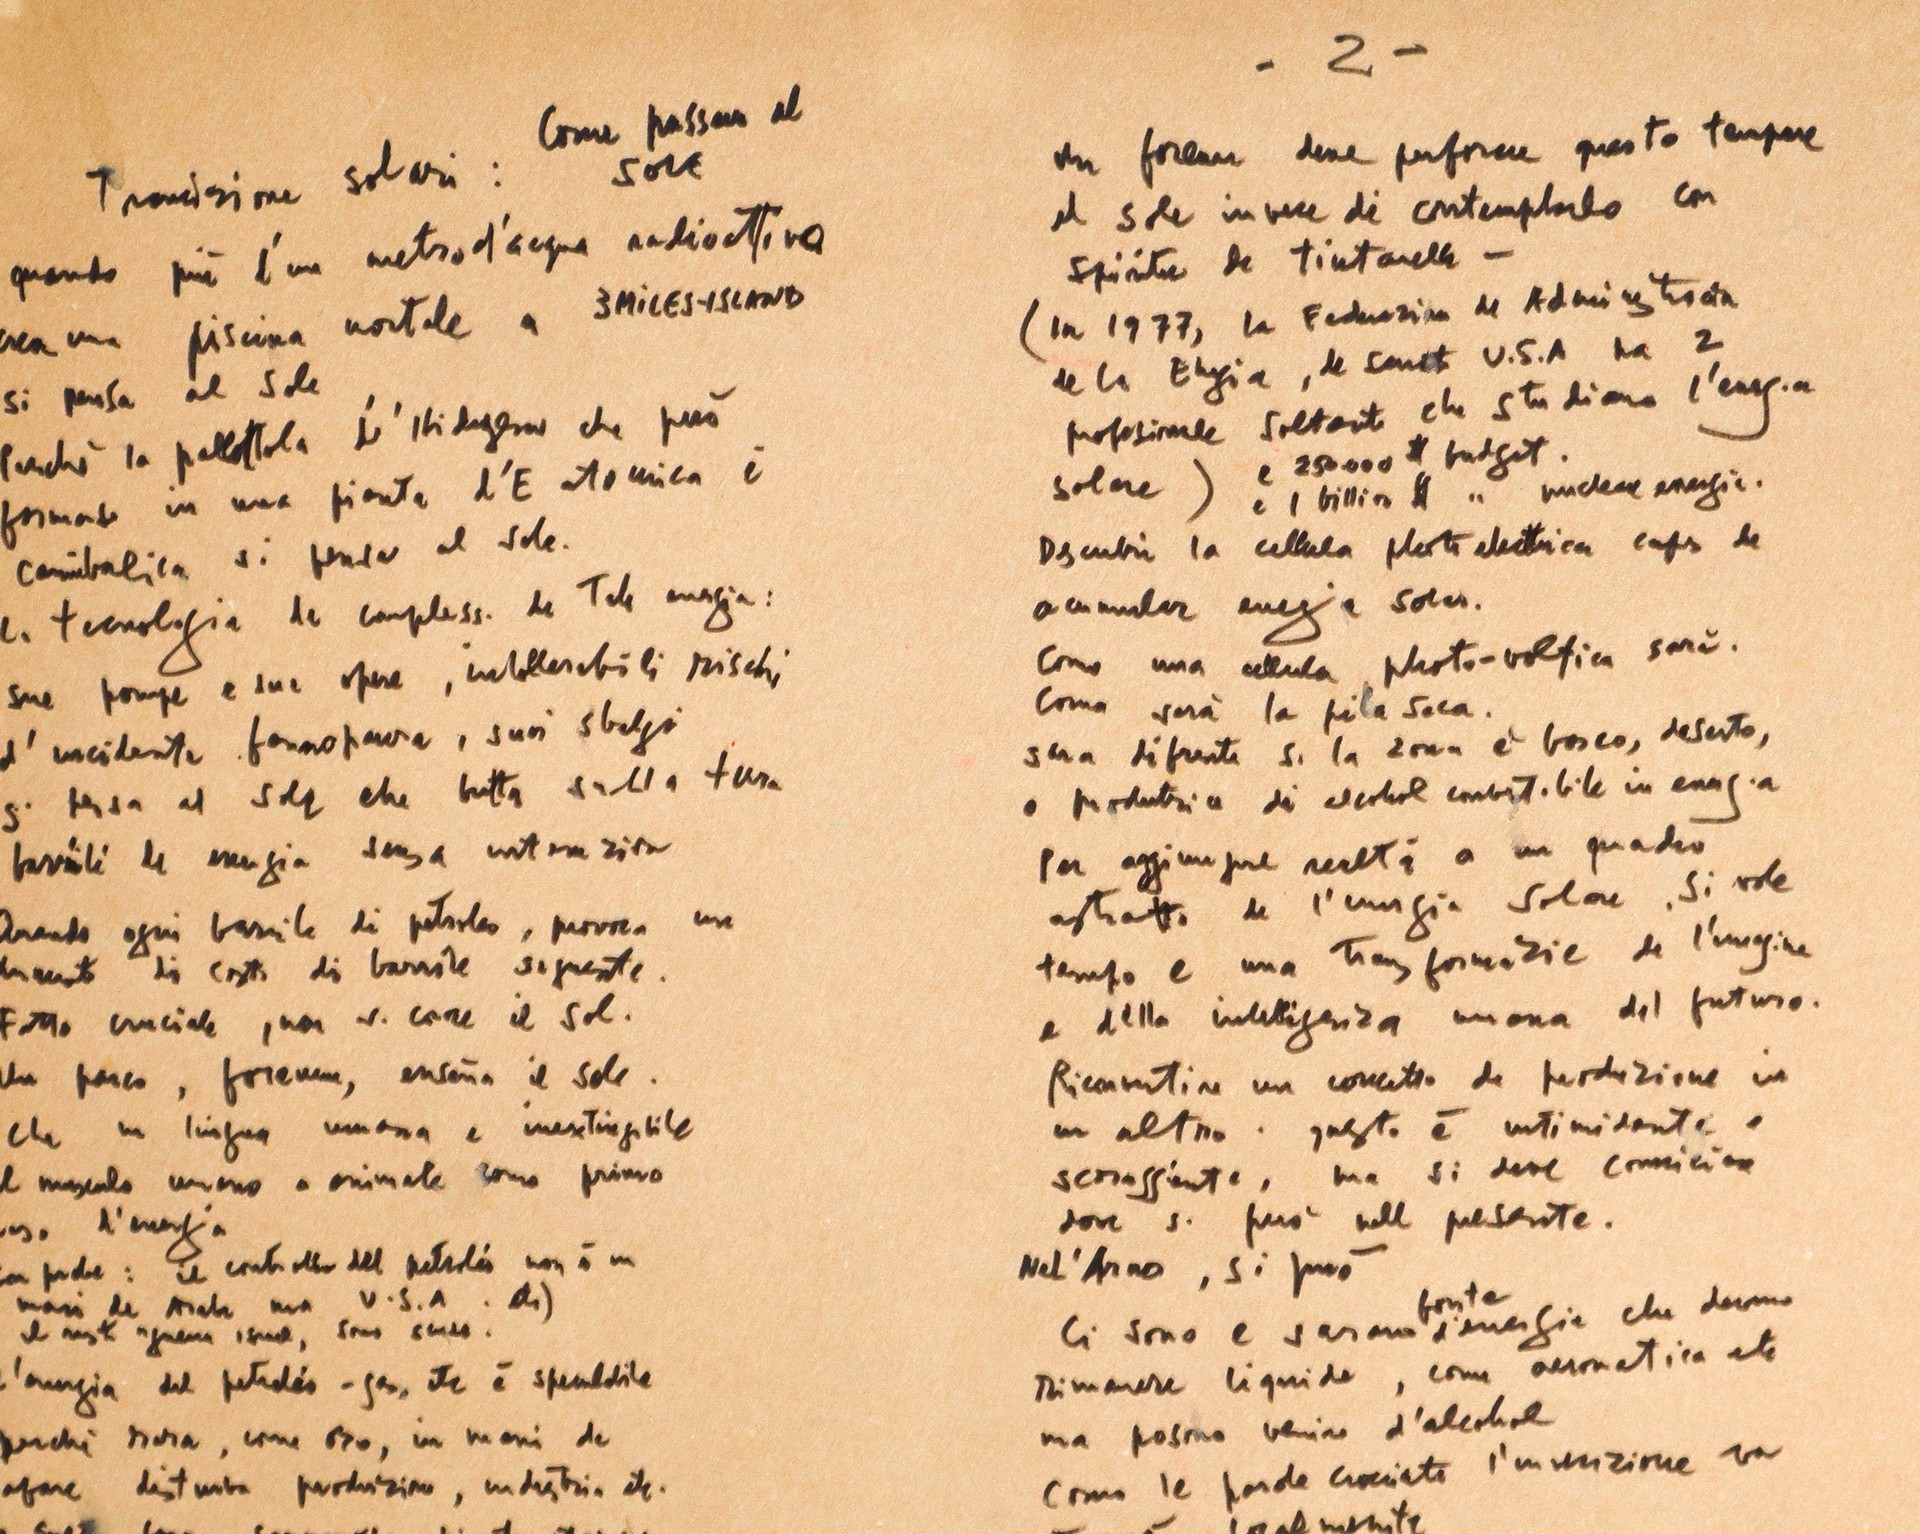 Come passare al
SOLE
Transizione solari :
quando più d'un metro d'acqua radioattiva
crea una piscina mortale a 3MILES-ISLAND
si pensa al Sole
Perchè la pallottola d'Hidrogeno che può
formarse in una pianta d'E atomica è
canibalica si pensa al sole.
La tecnologia de compless. de Tale energia:
sue pompe e sue opere, intollerabili rischi
d'incidente, suoi sbalgi
si pensa al Sole che butta sulla terra
barrili de energia senza
Quando ogni barrile di petroleo, provoca une
di costi di barrile seguente.
Fatto cruciale, non si cone il sol.
Un parco, foreaum, enseña il sole.
che in lingua umana e inextingibile
il musculo umano o animale como primo
d'energia
: il controllo del petroleo non è in
mani de Arabi ma U.S.A. di)
l'energia del petroleo - gas, etc è
perchè rara, come oro, in mani de
afare disturba produzione, industria etc.
- 2 -
un foreaum deve perforare questo tempore
il sole invece di contemplarlo con
spirito de tintarella -
(In 1977, la Federazion de Administracion
de la Enegia, de U.S.A ha 2
profesionale soltanto che studiano l'energia
solare) e 250.000 $ budget.
e 1 billion $ " nucleare energia.
Descubrir la cellula photoelettrica capas de
acumular energia solar.
Como una cellula photo-voltica sarà.
Como sarà la pila seca.
sera difrente si la zona è bosco, deserto,
o produtrice di alcohol combustibile in energia
Per aggiungere realtà a un quadro
astratto de l'energia solare, si vole
tempo e una transformazie de l'imagine
e della intelligenza umana del futuro.
Riconvertire un concetto de produzione in
un altro. questo è intimidante e
scoraggiante, ma si deve cominciare
dove si può nell presente.
Nel'Arno, si può
fonte
Ci sono e sarano d'energia che devono
Rimanere liquide, come aeronatica etc
ma posono venire d'alcohol
Como le parole crociate l'invenzione va
localmente